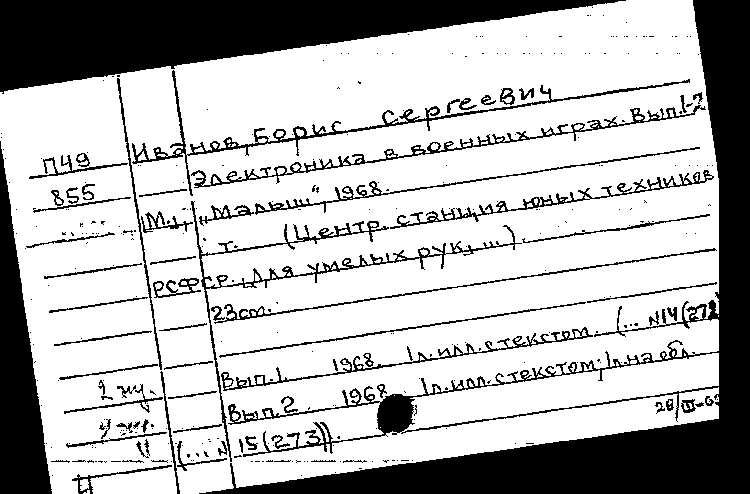 Иванов, Борис Сергеевич
П49
855
Электроника в военных играх. Вып. 1-2
М., „Малыш“, 1968.
т. (Центр. станция юных техников
РСФСР. Для умелых рук, ...).
23 см.
Вып. 1. 1968. 1 л. илл. с текстом. (... №14 (272
Вып. 2. 1968. 1 л. илл. с текстом; 1 л. на обл.
(... № 15 (273)).
2 жу.
Ц